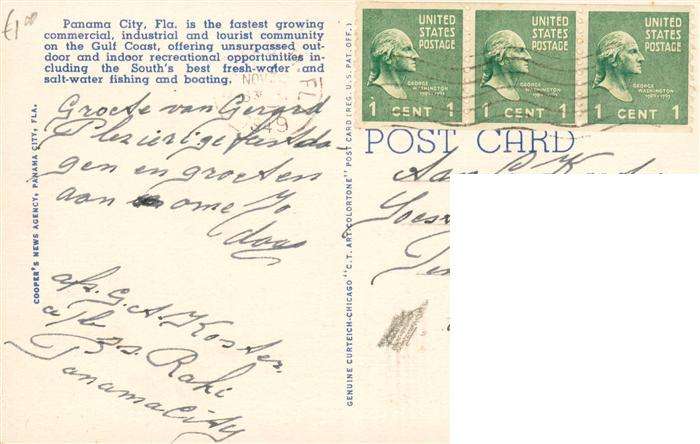 €1 00
Panama City, Fla. is the fastest growing
commercial, industrial and tourist community
on the Gulf Coast, offering unsurpassed out-
door and indoor recreational opportunities in-
cluding the South's best fresh-water and
salt-water fishing and boating.
NOV
1949
Groete van Gerard
Plezierige feestda
gen en groeten
aan ome Jo
daag
afs. G.A. Koster
a/b s.s. Raki
Panama City
COOPER'S NEWS AGENCY, PANAMA CITY, FLA.
GENUINE CURTEICH-CHICAGO "C.T. ART-COLORTONE" POST CARD (REG. U.S. PAT. OFF.)
UNITED STATES POSTAGE
GEORGE WASHINGTON
1 CENT 1
UNITED STATES POSTAGE
GEORGE WASHINGTON
1 CENT 1
UNITED STATES POSTAGE
GEORGE WASHINGTON
1 CENT 1
POST CARD
Aan